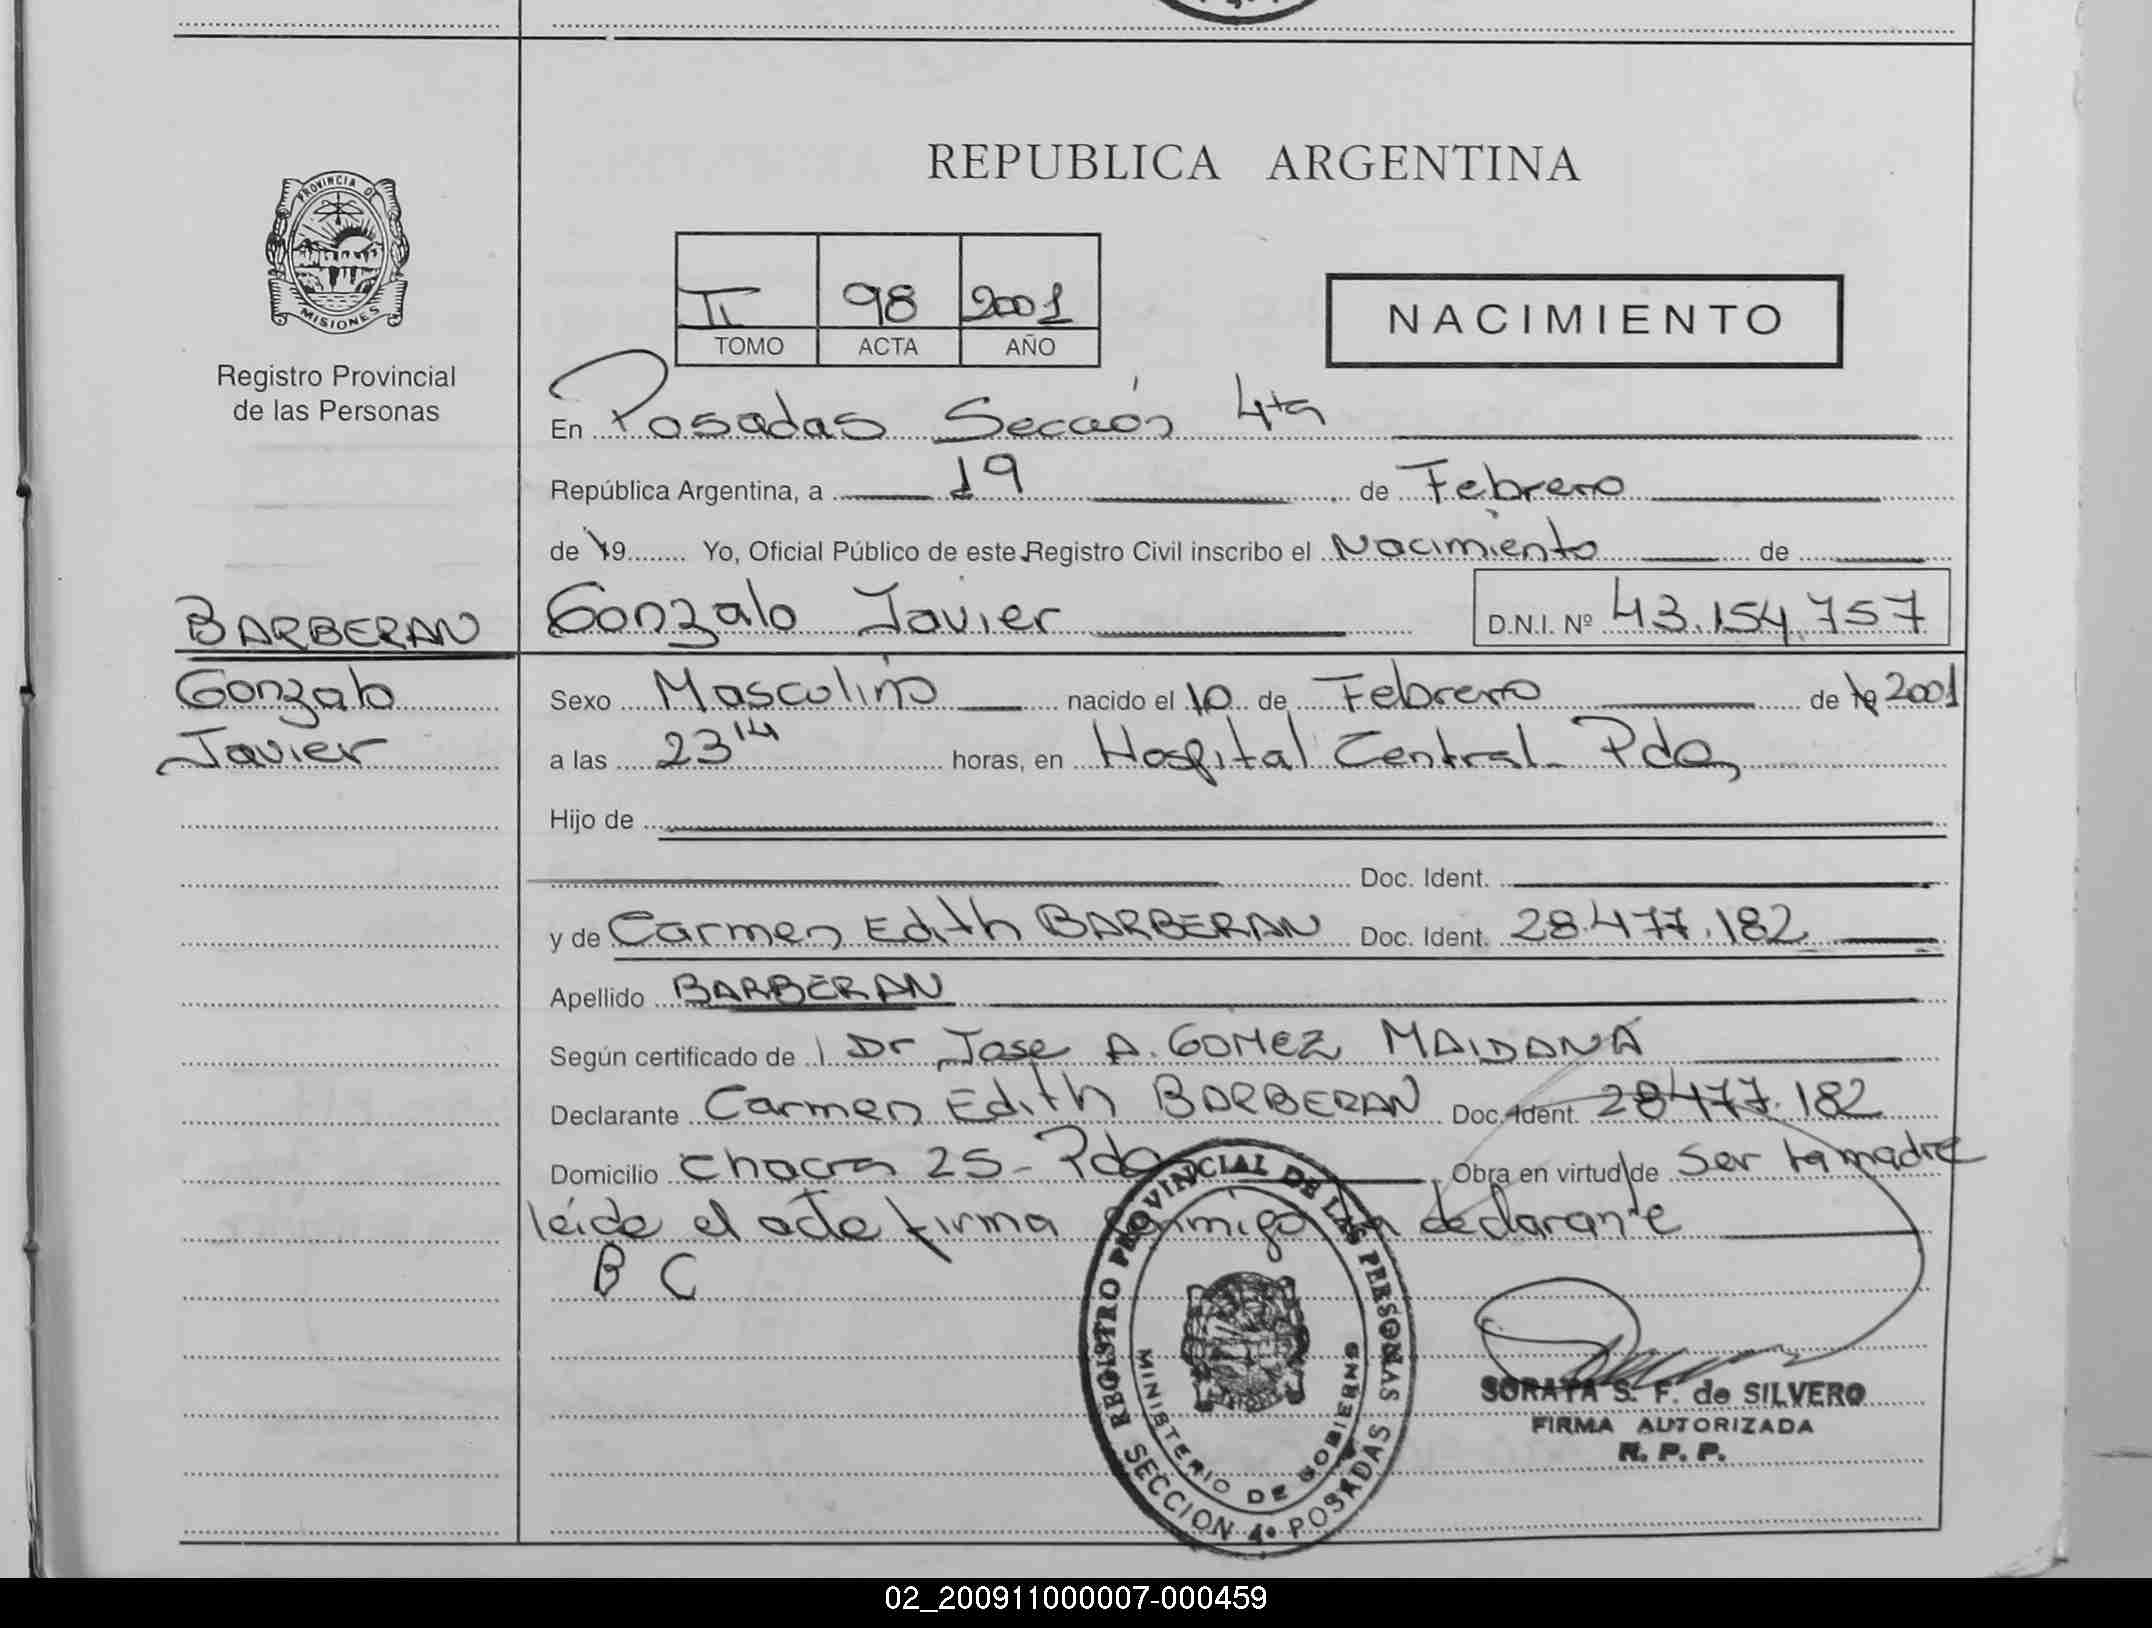 REPUBLICA ARGENTINA
PROVINCIA DE
MISIONES
Registro Provincial
de las Personas
II 98 2001
TOMO ACTA AÑO
NACIMIENTO
En Posadas Sección 4ta
República Argentina, a 19 de Febrero
de 19 Yo, Oficial Público de este Registro Civil inscribo el Nacimiento de
BARBERAN
Gonzalo
Javier
Gonzalo Javier D.N.I. Nº 43.154.757
Sexo Masculino nacido el 10 de Febrero de 19 2001
a las 23 14 horas, en Hospital Central - Pdas
Hijo de
Doc. Ident.
y de Carmen Edith BARBERAN Doc. Ident. 28.477.182
Apellido BARBERAN
Según certificado de Dr Jose A. GOMEZ MAIDANA
Declarante Carmen Edith BARBERAN Doc. Ident. 28477.182
Domicilio Chacra 25 - Pdas Obra en virtud de ser la madre
leida el acta firma conmigo la declarante
B C
REGISTRO PROVINCIAL DE LAS PERSONAS
MINISTERIO DE GOBIERNO
SECCION 4º POSADAS
SORAYA S. F. de SILVERO
FIRMA AUTORIZADA
R. P. P.
02_200911000007-000459